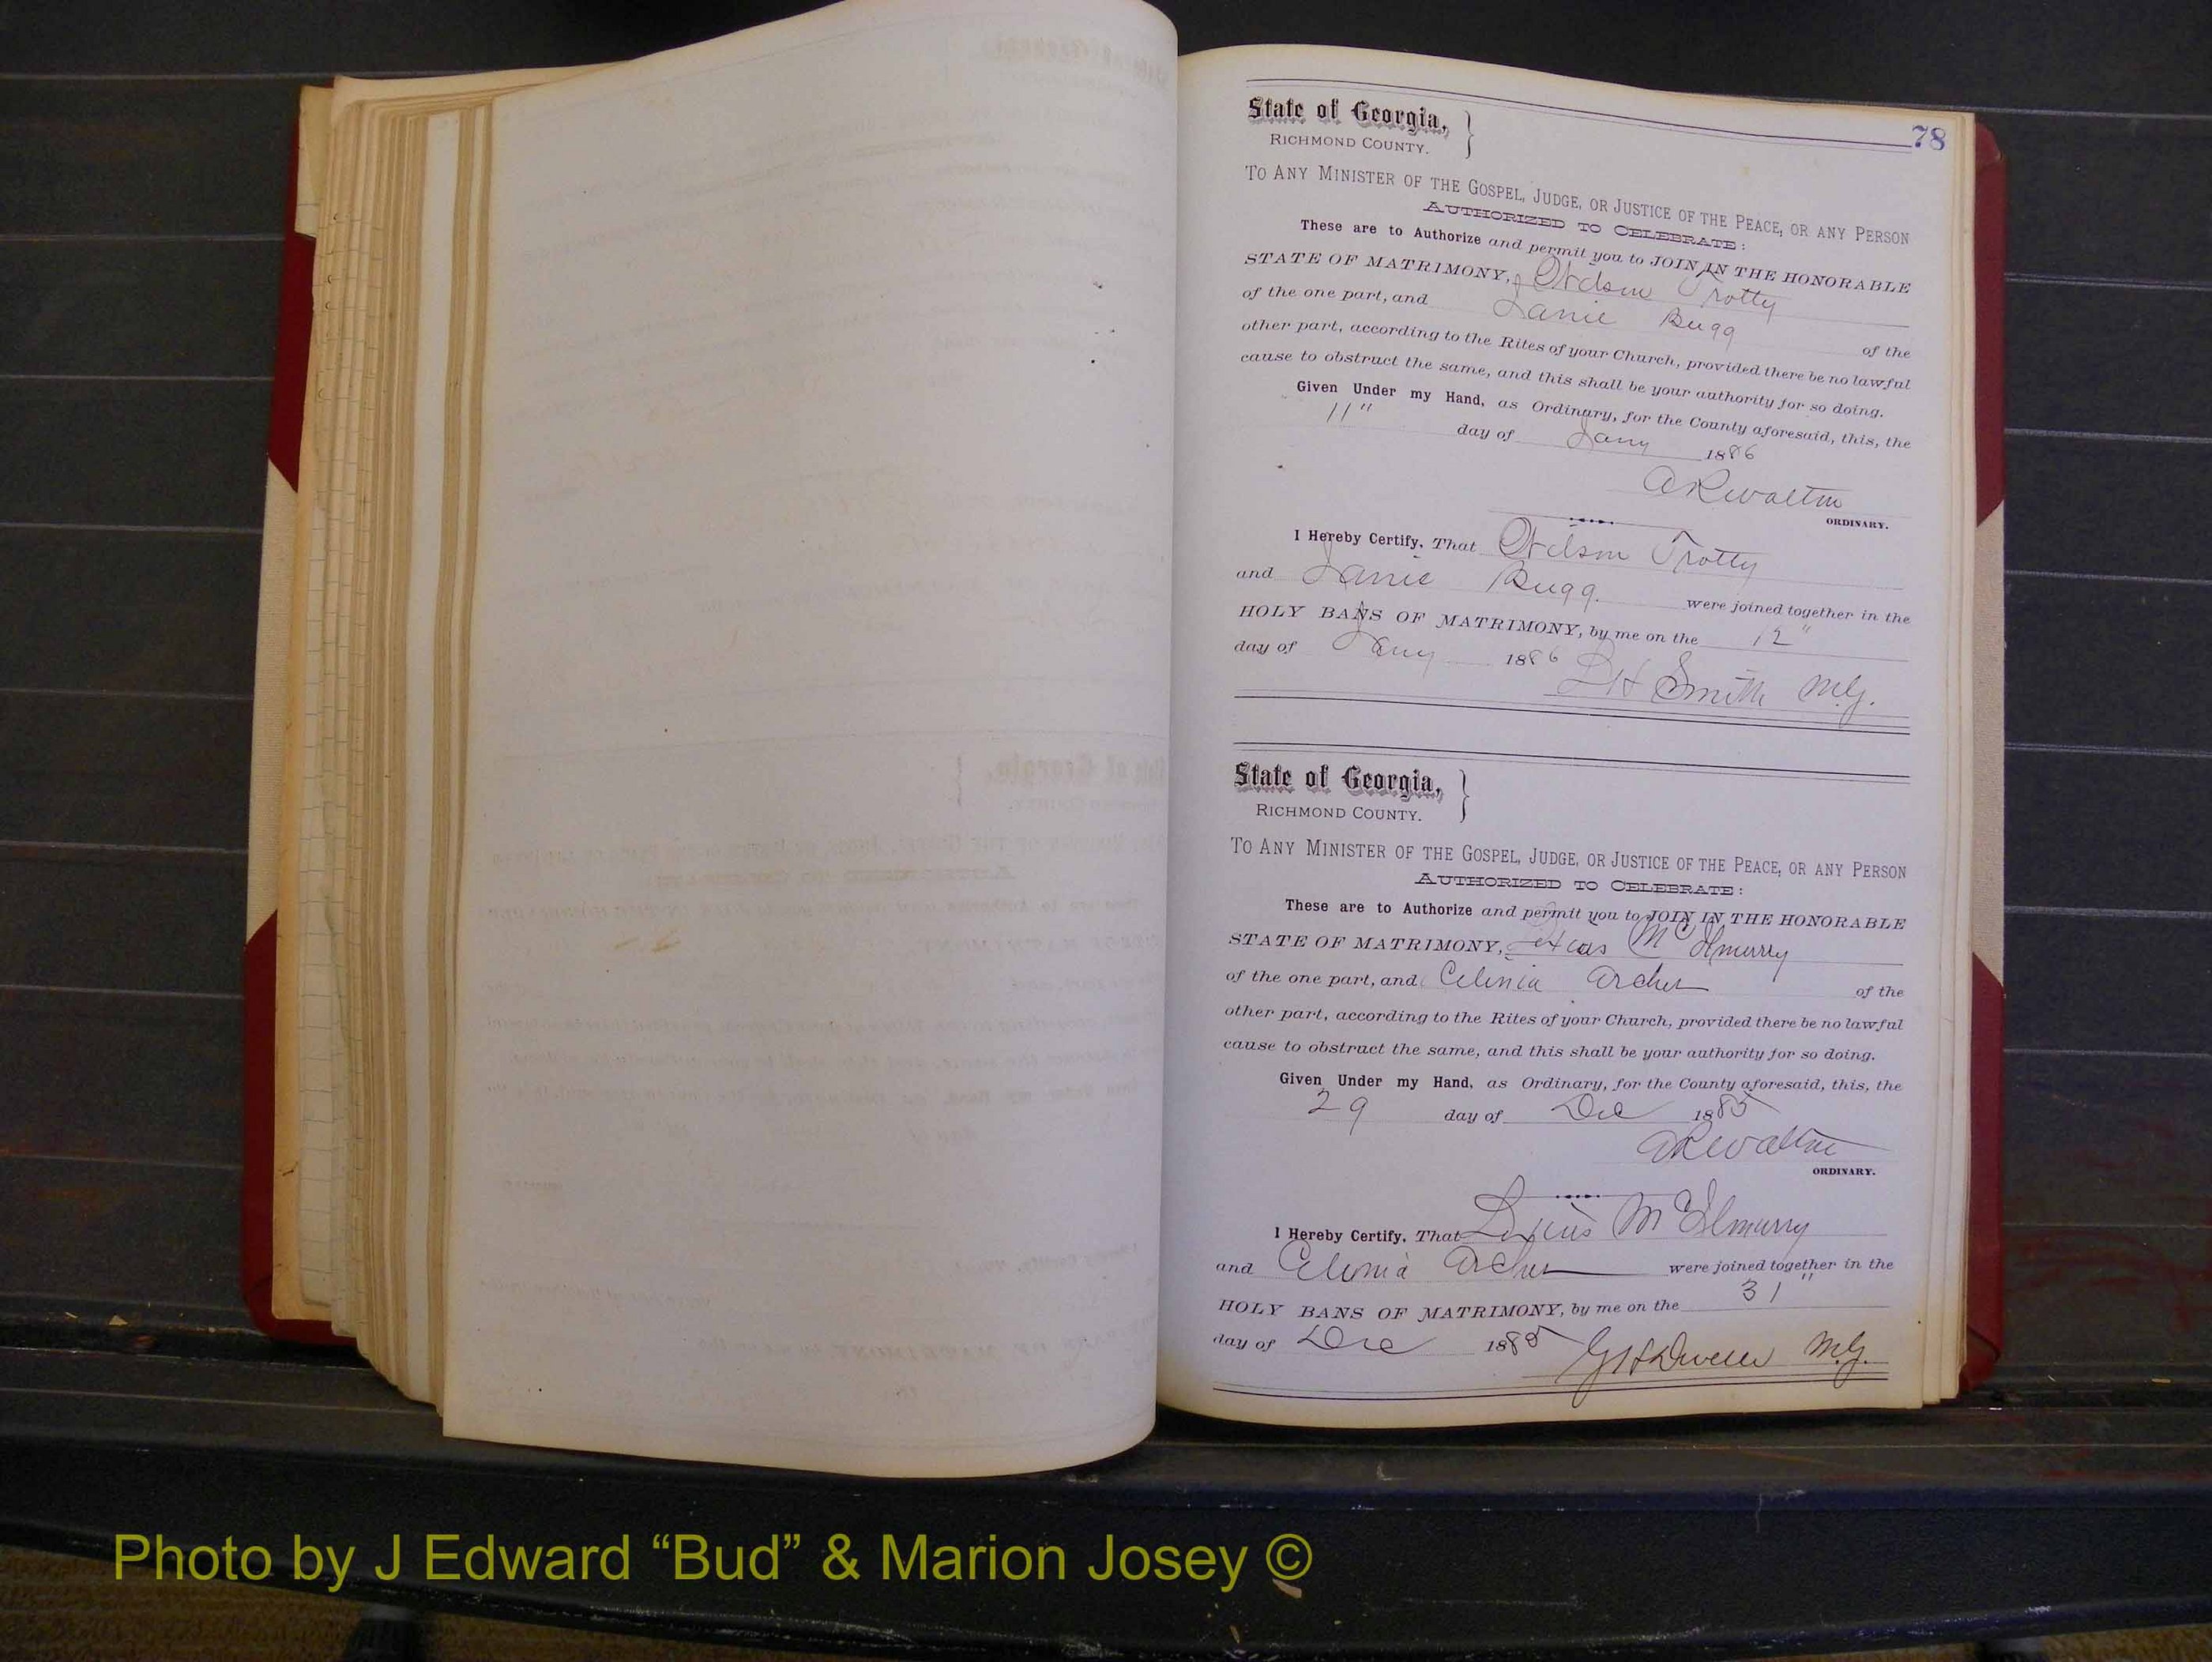 78
State of Georgia, }
RICHMOND COUNTY.
TO ANY MINISTER OF THE GOSPEL, JUDGE, OR JUSTICE OF THE PEACE, OR ANY PERSON
AUTHORIZED TO CELEBRATE:
These are to Authorize and permit you to JOIN IN THE HONORABLE
STATE OF MATRIMONY, Trotty
of the one part, and Janie Bugg of the
other part, according to the Rites of your Church, provided there be no lawful
cause to obstruct the same, and this shall be your authority for so doing.
Given Under my Hand, as Ordinary, for the County aforesaid, this, the
11" day of Jany 1886
A R Walton
ORDINARY.
I Hereby Certify, That Trotty
and Janie Bugg. were joined together in the
HOLY BANS OF MATRIMONY, by me on the 12"
day of Jany 1886 Smith M.G.
State of Georgia, }
RICHMOND COUNTY.
TO ANY MINISTER OF THE GOSPEL, JUDGE, OR JUSTICE OF THE PEACE, OR ANY PERSON
AUTHORIZED TO CELEBRATE:
These are to Authorize and permit you to JOIN IN THE HONORABLE
STATE OF MATRIMONY, McElmurry
of the one part, and Archer of the
other part, according to the Rites of your Church, provided there be no lawful
cause to obstruct the same, and this shall be your authority for so doing.
Given Under my Hand, as Ordinary, for the County aforesaid, this, the
29 day of Dec 1885
A R Walton
ORDINARY.
I Hereby Certify, That McElmurry
and Archer were joined together in the
HOLY BANS OF MATRIMONY, by me on the 31"
day of Dec 1885 M.G.
Photo by J Edward “Bud” & Marion Josey ©